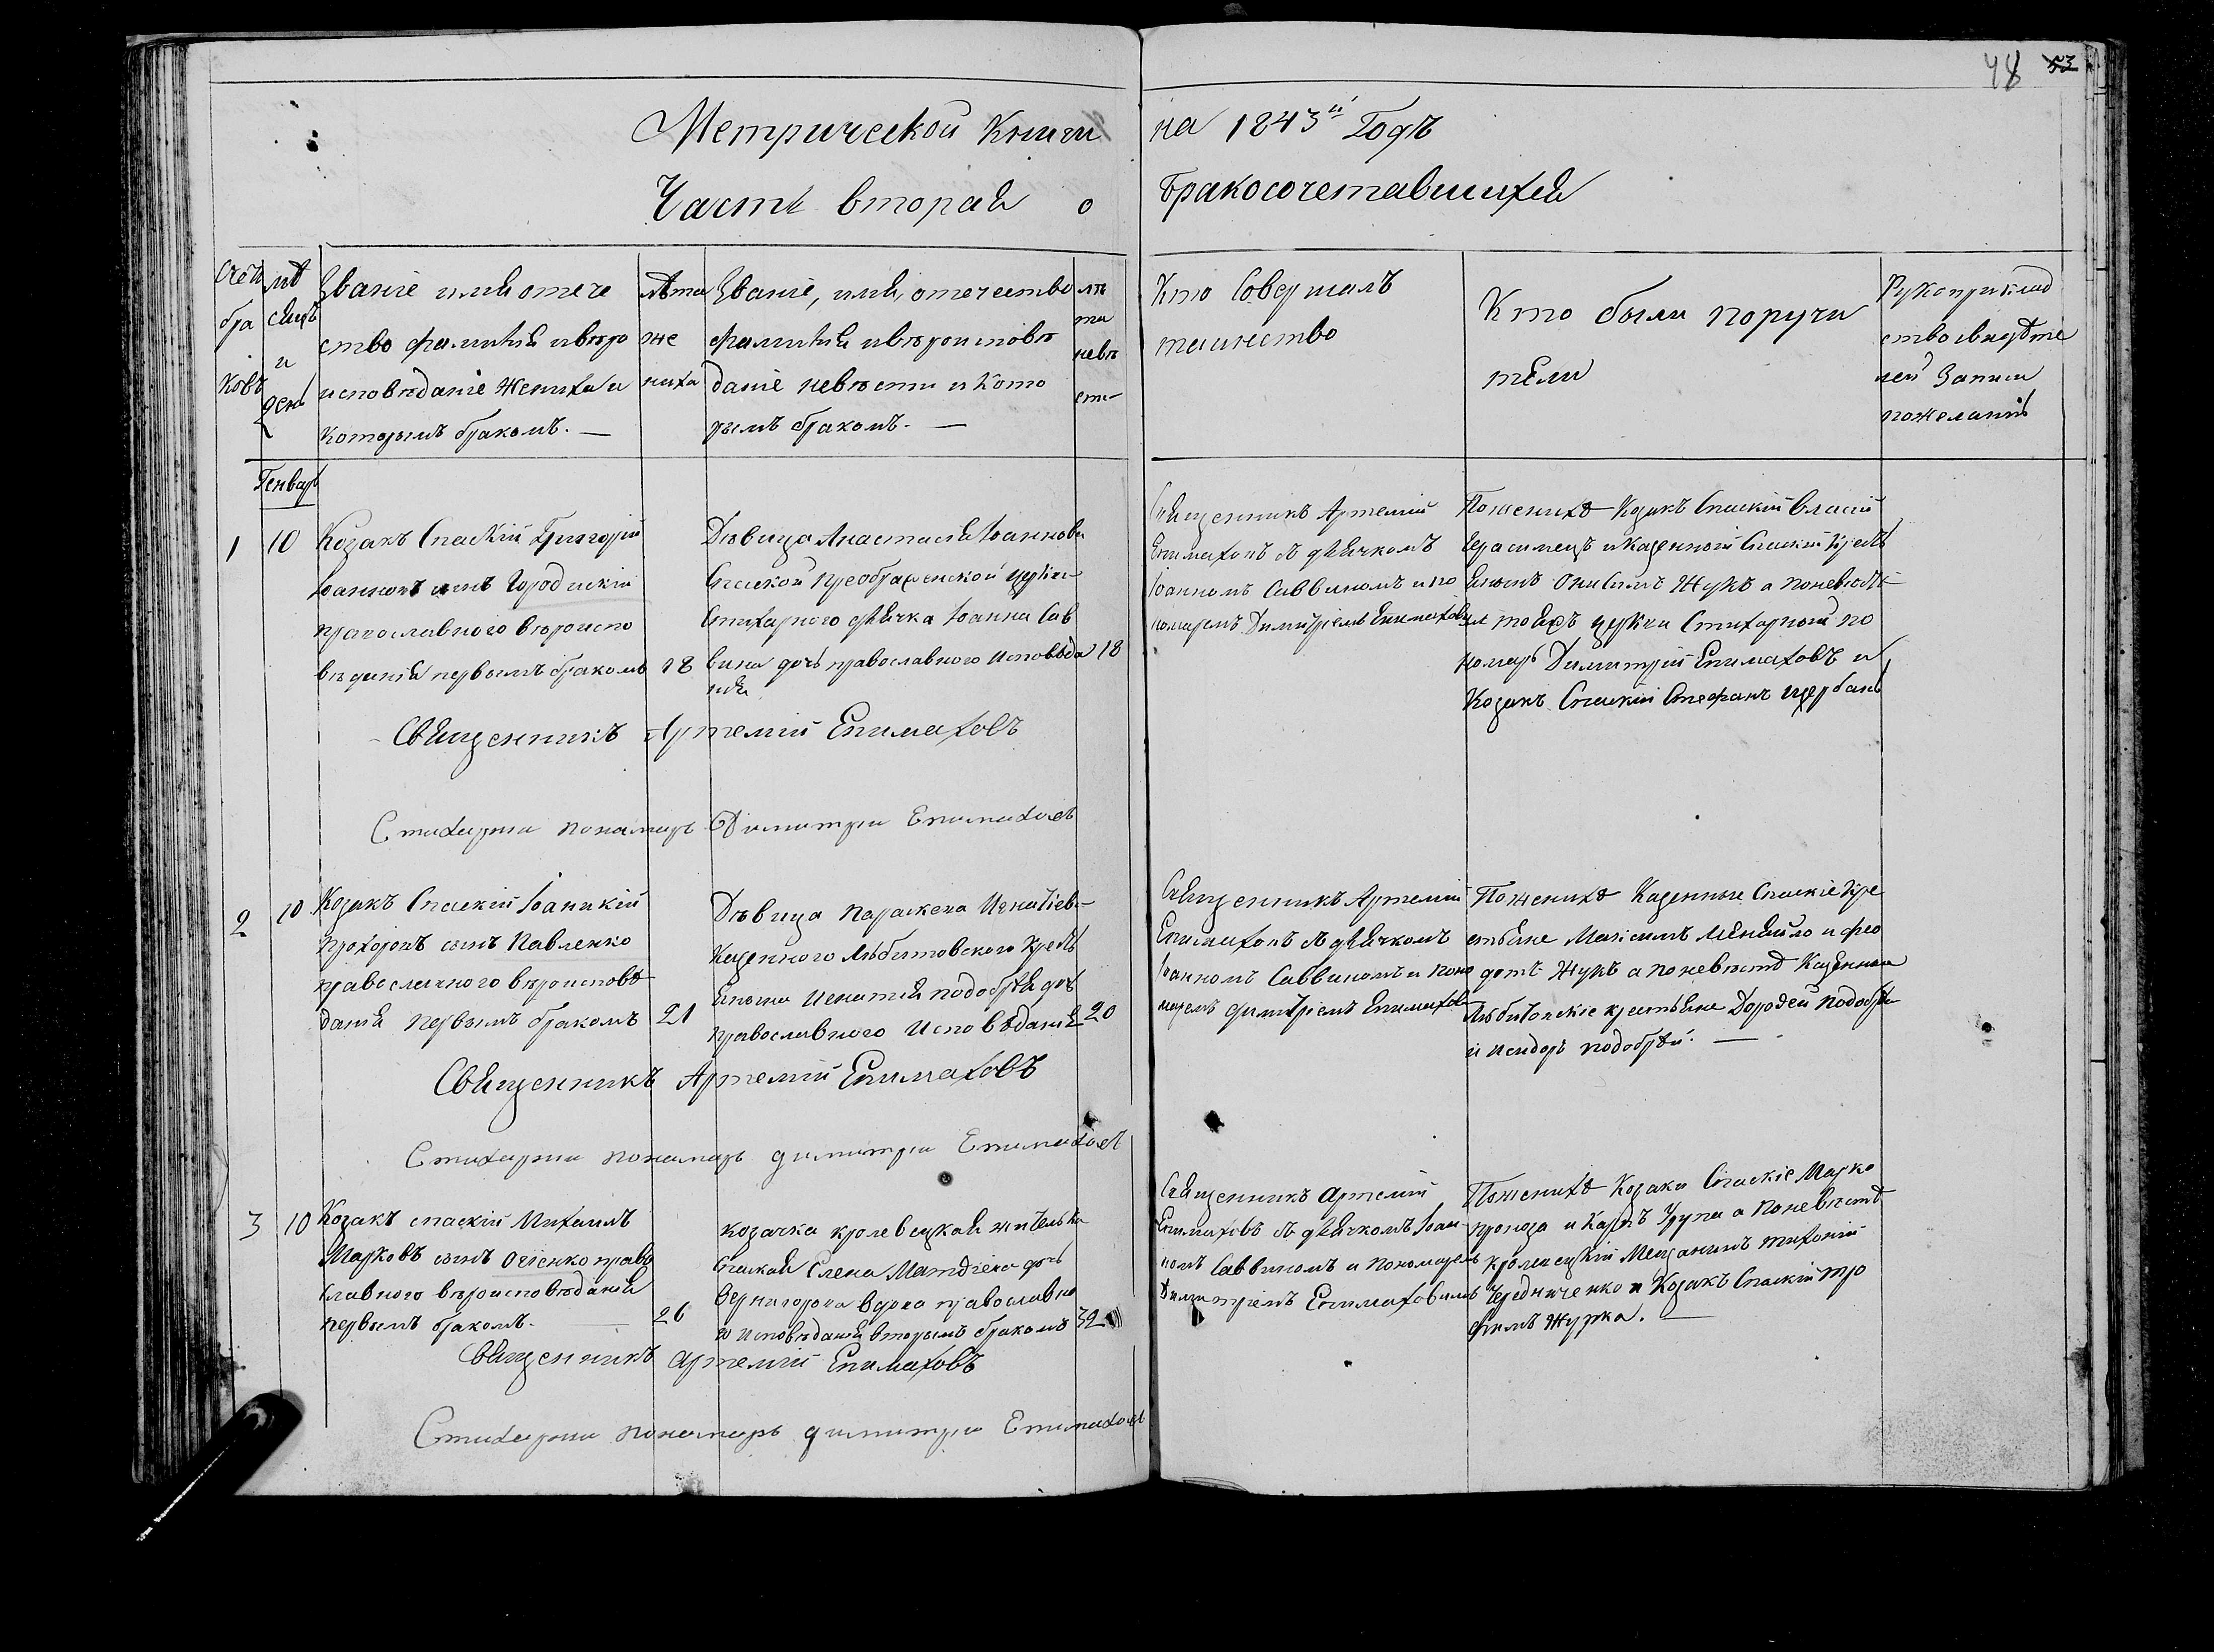 48 53
Метрической Книги на 1843й Годъ
Часть вторая о бракосочетавшихся
Счетъ
бра
ковъ
мѣ
сяцъ
и
день
Званіе имя отече
ство фамилія и вѣро
исповѣданіе Жениха и
которымъ бракомъ. —
лѣта
же
ниха
Званіе, имя, отечество
фамилія и вѣроисповѣ
даніе невѣсты и Кото
рымъ бракомъ. —
лѣ
та
невѣ
сты
Кто Совершалъ
таинство
Кто были поручи
тели
Рукоприклад
ство свидѣте
лей Записи
пожеланію
Генварь
1
10
Козакъ Спаскій Григорій
Іоанновъ сынъ Городискій
православного вѣроиспо
вѣданія первымъ бракомъ
18
Дѣвица Анастасія Іоаннова
Спаской Преображенской церкви
Стихарного дьячка Іоанна Сав
вина дочь православного Исповѣда
нія
18
Священникъ Артемій
Епимаховъ съ дьячкомъ
Іоанномъ Саввинымъ и по
номаремъ Димитріемъ Епимаховымъ
По женихѣ Козакъ Спаскій Власій
Герасимецъ и Казенный Спаскій Крестъ
янинъ Онисимъ Жукъ а по невѣстѣ
тояжъ церкви Стихарный по
номарь Димитрій Епимаховъ и
Козакъ Спаскій Стефанъ Щербань
Священникъ Артемій Епимаховъ
Стихарни понамарь Димитри Епимаховъ
2
10
Козакъ Спаскій Іоаникій
Прохоровъ сынъ Павленко
православного вѣроисповѣ
данія первымъ бракомъ
21
Дѣвица Параскева Игнатіева
Казенного Любитовского Кресть
янина Игнатія Подобрѣя дочь
православного Исповѣданія
20
Священникъ Артемій
Епимаховъ съ дьячкомъ
Іоанномъ Саввинымъ и поно
маремъ Димитріемъ Епимахов
По женихѣ Казенные Спаскіе Кре
стьяне Максимъ Меняйло и Фео
дотъ Жукъ а по невѣстѣ Казенные
Любитовскіе крестьяне Дорофей Подобрѣй
и Исидоръ Подобрѣй. —
Священникъ Артемій Епимаховъ
Стихарни понамарь димитри Епимаховъ
3
10
Козакъ спаскій Михаилъ
Марковъ сынъ Овсіенко право
славного вѣроисповѣданія
первымъ бракомъ. —
26
козачка кролевецкая жителька
Спаская Елена Матфіева дочь
Вернигорова вдова православно
го Исповѣданія вторымъ бракомъ
32
Священникъ Артемій
Епимаховъ съ дьячкомъ Іоан
номъ Саввинымъ и пономаремъ
Димитріемъ Епимаховымъ
По женихѣ Козаки Спаскіе Марко
и Карпъ а по невѣстѣ
кролевецкій Мещанинъ Тихоній
Чередниченко и Козакъ Спаскій Тро
фимъ Журка. —
Священникъ Артемій Епимаховъ
Стихарни понамарь димитри Епимаховъ